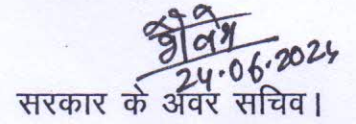 24.06.2024
सरकार के अवर सचिव।